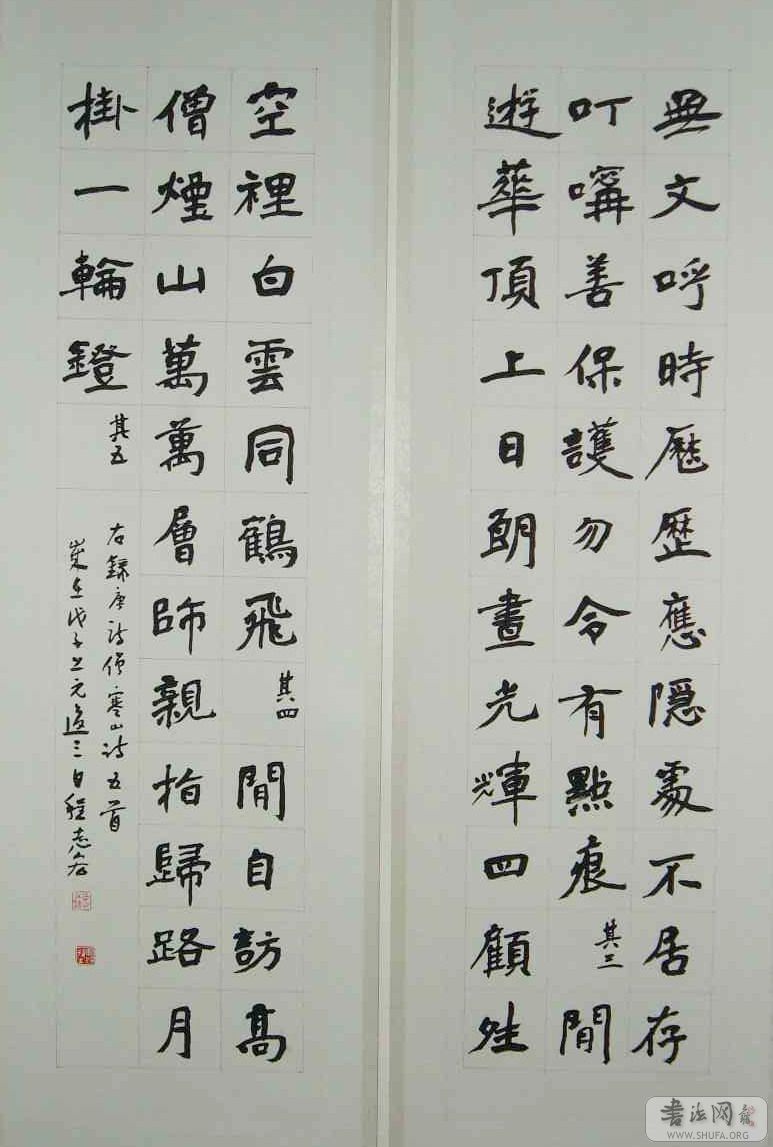 無文呼時厯歷應隱處不居存
叮嚀善保護勿令有點痕 其三 閒
遊華頂上日朗晝光輝四顧夝
空裡白雲同鶴飛 其四 閒自訪高
僧煙山萬萬層師親指歸路月
掛一輪鐙 其五
右録唐诗僧寒山诗五首
歲在戊子上元後三日程志
書法网
WWW.SHUFA.ORG